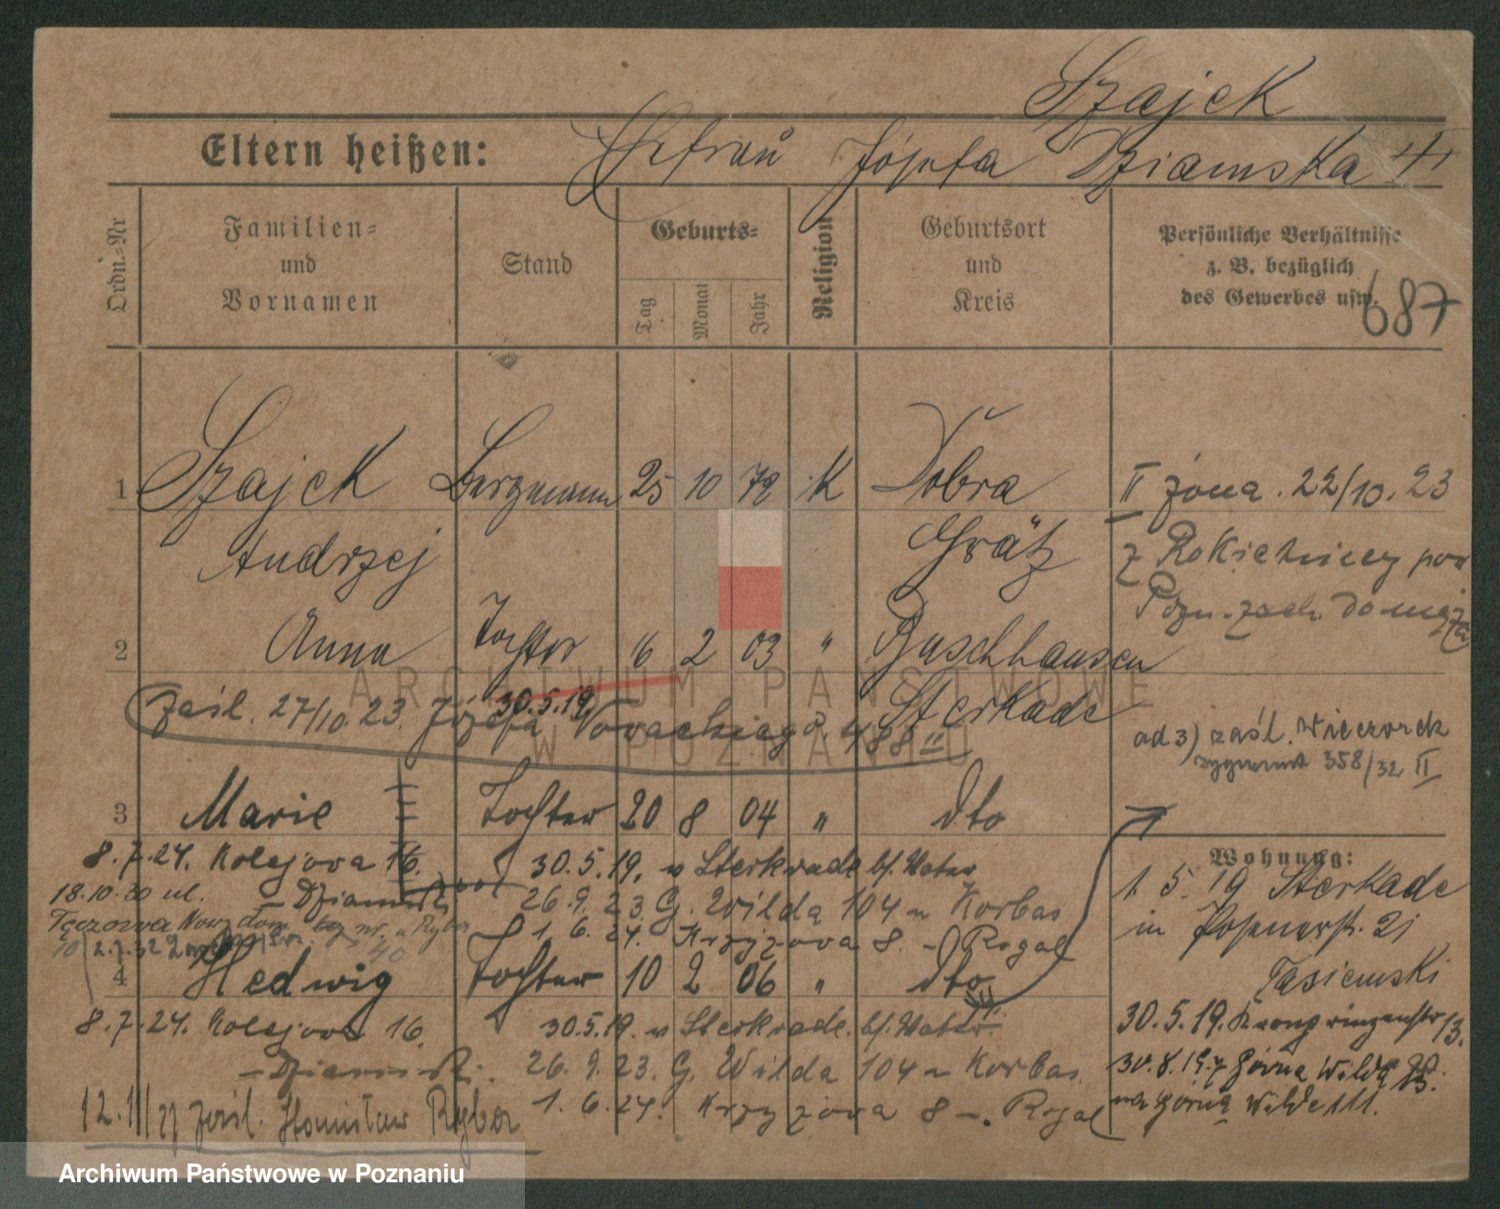 Szajek
Eltern heißen: Ehefrau Józefa Dziamska
Ordn.-Nr
Familien- und Vornamen
Stand
Geburts-
Tag
Monat
Jahr
Religion
Geburtsort und Kreis
Persönliche Verhältnisse
z. B. bezüglich
des Gewerbes usw.
687
1 Szajek Bergmann 25 10 72 K Dobra II żona. 22/10.23
Andrzej Grätz z Rokietnicy pow
Pozn. zach. do męża
2 Anna Tochter 6 2 03 " Buschhausen
30.5.19. Sterkade
zaśl. 27/10.23. Józefa Nowackiego 488 II
ad 3) zaśl. Wieczorek
Zygmunt 358/32 II
3 Marie Tochter 20 8 04 " dto
8.7.24. Kolejova 16. 30.5.19. v Sterkrade bf. Vater
Wohnung:
18.10.30 ul. – Dziamski 26.9.23. G. Wilda 104 – Korbas
1. 5. 19 Sterkade
Tęczowa
1. 6. 24. Krzyżova 8. – Rogal
in Posenerstr. 21
4 Hedwig Tochter 10 2 06 " dto
Tasiemski
8.7.24. Kolejova 16. 30.5.19. v Sterkrade. bf. Vater
30.5.19. Kronprinzenstr 13.
– Dziamski. 26.9.23. G. Wilda 104 – Korbas
30.8.19. Górna Wilda
12.1 zaśl. Stanisław Ryba 1. 6. 24. Krzyżova 8 –. Rogal
na Górną Wildę 111.
ARCHIWUM PAŃSTWOWE
W POZNANIU
Archiwum Państwowe w Poznaniu